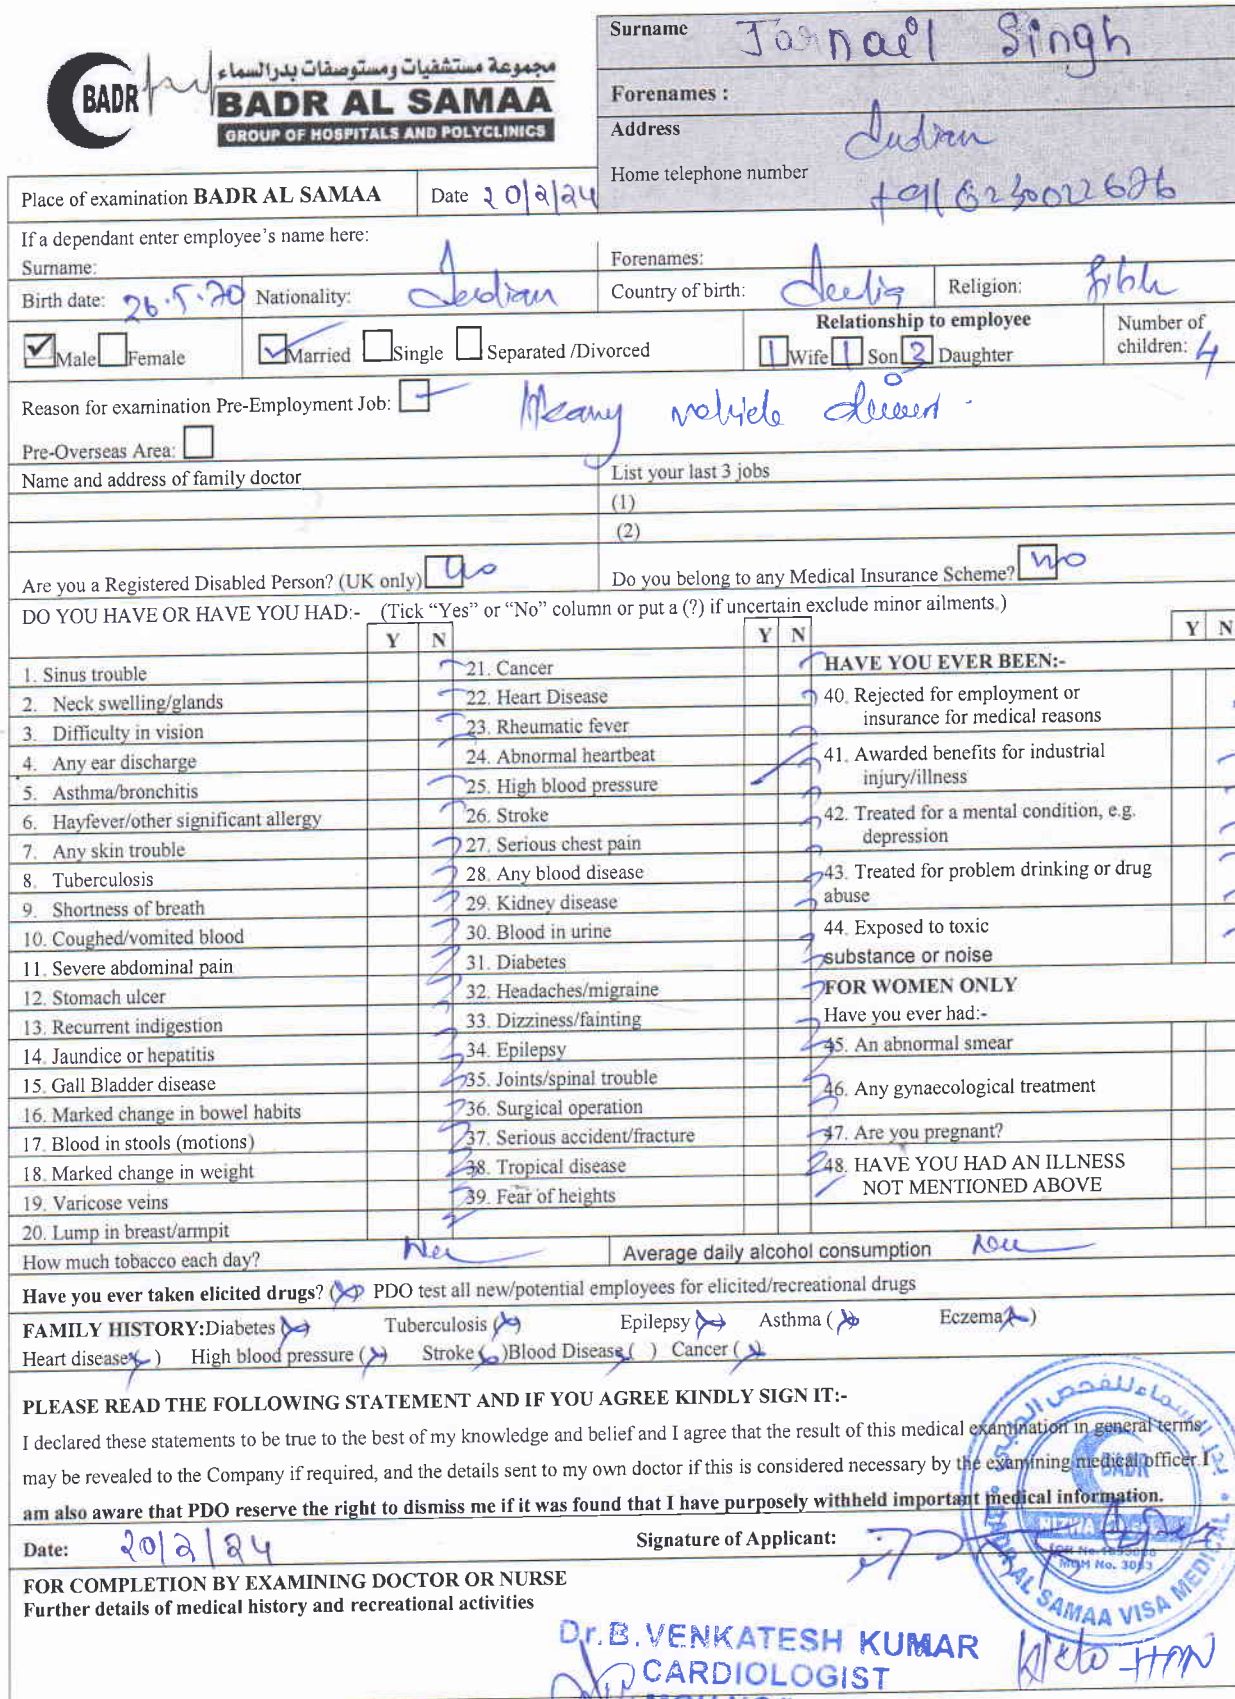 مجموعة مستشفيات ومستوصفات بدر السماء
BADR
BADR AL SAMAA
GROUP OF HOSPITALS AND POLYCLINICS
Surname Jarnail Singh
Forenames :
Address Indian
Home telephone number
Place of examination BADR AL SAMAA Date 20/2/24
If a dependant enter employee's name here:
Surname: Forenames:
Birth date: 26.5.70 Nationality: Indian Country of birth: India Religion:
Male Female Married Single Separated /Divorced
Relationship to employee
1 Wife 1 Son 3 Daughter
Number of children: 4
Reason for examination Pre-Employment Job: Heavy vehicle driver.
Pre-Overseas Area:
Name and address of family doctor
List your last 3 jobs
(1)
(2)
Are you a Registered Disabled Person? (UK only) No
Do you belong to any Medical Insurance Scheme? No
DO YOU HAVE OR HAVE YOU HAD:- (Tick "Yes" or "No" column or put a (?) if uncertain exclude minor ailments.)
Y N Y N Y N
1. Sinus trouble
2. Neck swelling/glands
3. Difficulty in vision
4. Any ear discharge
5. Asthma/bronchitis
6. Hayfever/other significant allergy
7. Any skin trouble
8. Tuberculosis
9. Shortness of breath
10. Coughed/vomited blood
11. Severe abdominal pain
12. Stomach ulcer
13. Recurrent indigestion
14. Jaundice or hepatitis
15. Gall Bladder disease
16. Marked change in bowel habits
17. Blood in stools (motions)
18. Marked change in weight
19. Varicose veins
20. Lump in breast/armpit
21. Cancer
22. Heart Disease
23. Rheumatic fever
24. Abnormal heartbeat
25. High blood pressure
26. Stroke
27. Serious chest pain
28. Any blood disease
29. Kidney disease
30. Blood in urine
31. Diabetes
32. Headaches/migraine
33. Dizziness/fainting
34. Epilepsy
35. Joints/spinal trouble
36. Surgical operation
37. Serious accident/fracture
38. Tropical disease
39. Fear of heights
HAVE YOU EVER BEEN:-
40. Rejected for employment or
insurance for medical reasons
41. Awarded benefits for industrial
injury/illness
42. Treated for a mental condition, e.g.
depression
43. Treated for problem drinking or drug
abuse
44. Exposed to toxic
substance or noise
FOR WOMEN ONLY
Have you ever had:-
45. An abnormal smear
46. Any gynaecological treatment
47. Are you pregnant?
48. HAVE YOU HAD AN ILLNESS
NOT MENTIONED ABOVE
How much tobacco each day?
Average daily alcohol consumption
Have you ever taken elicited drugs? ( ) PDO test all new/potential employees for elicited/recreational drugs
FAMILY HISTORY: Diabetes ( ) Tuberculosis ( ) Epilepsy ( ) Asthma ( ) Eczema ( )
Heart disease ( ) High blood pressure ( ) Stroke ( ) Blood Disease ( ) Cancer ( )
PLEASE READ THE FOLLOWING STATEMENT AND IF YOU AGREE KINDLY SIGN IT:-
I declared these statements to be true to the best of my knowledge and belief and I agree that the result of this medical examination in general terms
may be revealed to the Company if required, and the details sent to my own doctor if this is considered necessary by the examining medical officer I
am also aware that PDO reserve the right to dismiss me if it was found that I have purposely withheld important medical information.
Date: 20/2/24 Signature of Applicant:
BADR
NIZWA
MOH No. 3083
BADR AL SAMAA VISA MEDICAL
FOR COMPLETION BY EXAMINING DOCTOR OR NURSE
Further details of medical history and recreational activities
Dr. B. VENKATESH KUMAR
CARDIOLOGIST